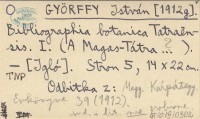 O GYÖRFFY István [1912?].
Bibliographia botanica Tátraën-
sis. I. (A Magas-Tátra ... ).
— [Igló]. Stron 5, 14 x 22 cm.
TNP
Odbitka z: Magy. Kárpátegy.
39 (1912).